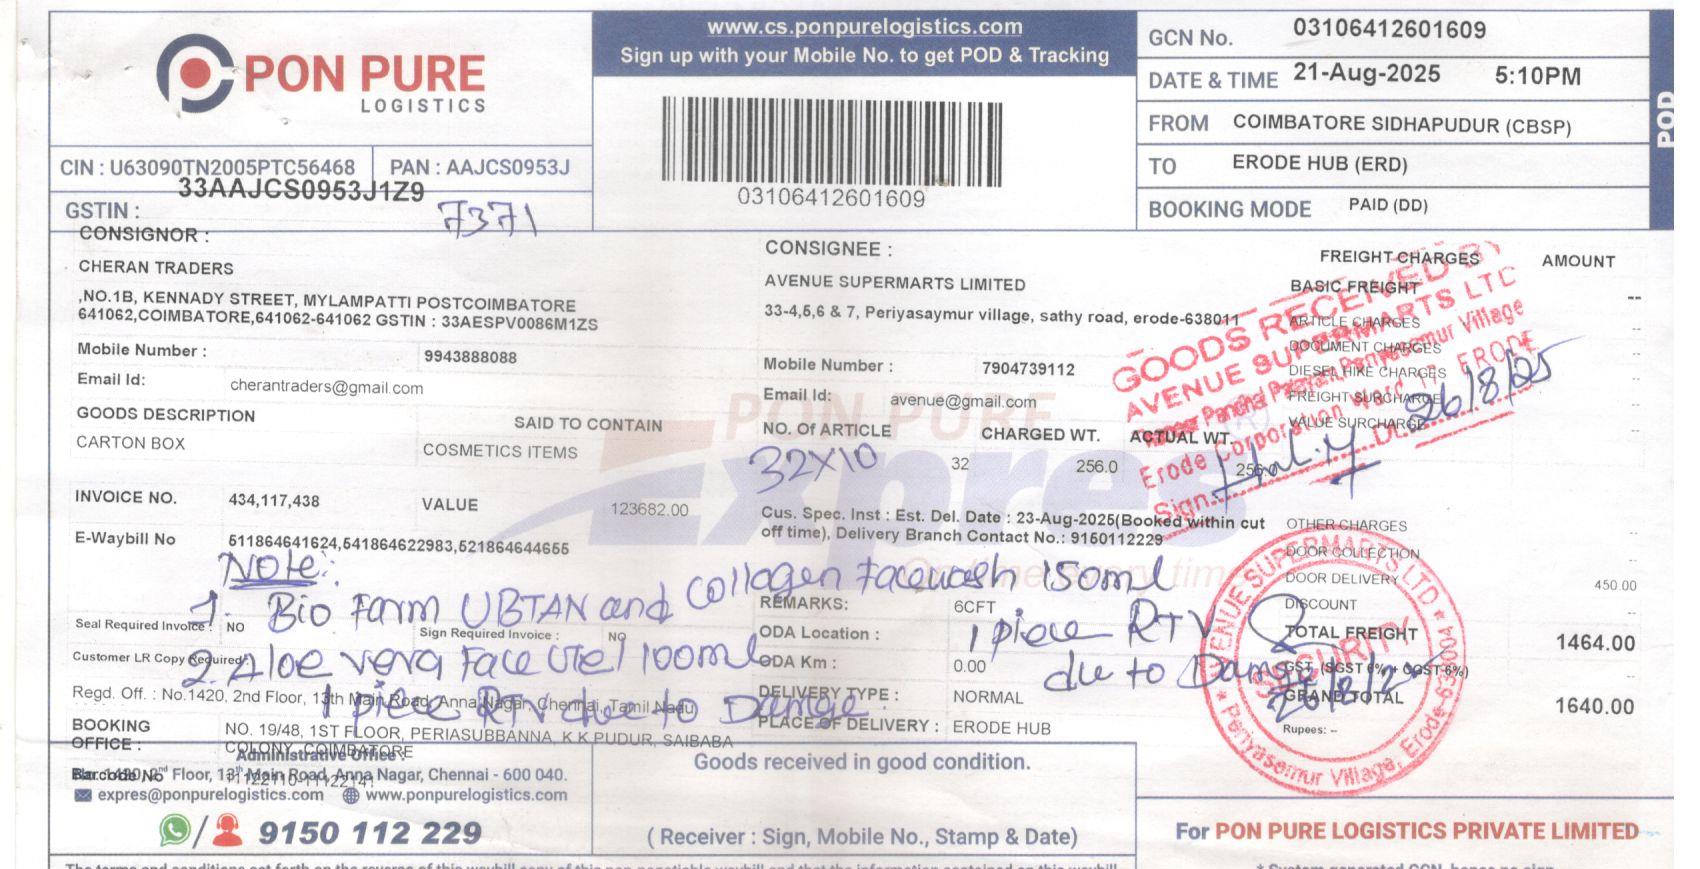 PON PURE
LOGISTICS
www.cs.ponpurelogistics.com
Sign up with your Mobile No. to get POD & Tracking
03106412601609
GCN No. 03106412601609
DATE & TIME 21-Aug-2025 5:10PM
FROM COIMBATORE SIDHAPUDUR (CBSP)
TO ERODE HUB (ERD)
BOOKING MODE PAID (DD)
POD
CIN : U63090TN2005PTC56468 PAN : AAJCS0953J
33AAJCS0953J1Z9
GSTIN :
7371
CONSIGNOR :
CHERAN TRADERS
,NO.1B, KENNADY STREET, MYLAMPATTI POSTCOIMBATORE
641062,COIMBATORE,641062-641062 GSTIN : 33AESPV0086M1ZS
Mobile Number : 9943888088
Email Id: cherantraders@gmail.com
GOODS DESCRIPTION SAID TO CONTAIN
CARTON BOX COSMETICS ITEMS
INVOICE NO. 434,117,438 VALUE 123682.00
E-Waybill No 511864641624,541864622983,521864644655
CONSIGNEE :
AVENUE SUPERMARTS LIMITED
33-4,5,6 & 7, Periyasaymur village, sathy road, erode-638011
Mobile Number : 7904739112
Email Id: avenue@gmail.com
NO. Of ARTICLE CHARGED WT. ACTUAL WT.
32X10 32 256.0 256.0
Cus. Spec. Inst : Est. Del. Date : 23-Aug-2025(Booked within cut
off time), Delivery Branch Contact No.: 9150112229
PON PURE
Expres
On time every time
FREIGHT CHARGES AMOUNT
BASIC FREIGHT --
ARTICLE CHARGES --
DOCUMENT CHARGES --
DIESEL HIKE CHARGES --
FREIGHT SURCHARGE --
VALUE SURCHARGE --
OTHER CHARGES
DOOR COLLECTION
DOOR DELIVERY 450.00
DISCOUNT
TOTAL FREIGHT 1464.00
GST (SGST 6% + CGST 6%)
GRAND TOTAL 1640.00
Rupees: --
GOODS RECEIVED BY
AVENUE SUPERMARTS LTD
Periyasemur Village
Erode Corporation Ward 17 ERODE
Sign. Dt. 26/8/25
AVENUE SUPERMARTS LTD
SECURITY
Periyasemur Village, Erode-638004
26/8/20
Note:
1. Bio Farm UBTAN and collagen Facewash 150ml
1 piece RTV
due to Damge
2. Aloe vera Face Gel 100ml
1 piece RTV due to Damge
REMARKS: 6CFT
Seal Required Invoice : NO Sign Required Invoice : NO
ODA Location :
Customer LR Copy Required:
ODA Km : 0.00
Regd. Off. : No.1420, 2nd Floor, 13th Main Road, Anna Nagar, Chennai, Tamil Nadu
DELIVERY TYPE : NORMAL
BOOKING OFFICE : NO. 19/48, 1ST FLOOR, PERIASUBBANNA, K K PUDUR, SAIBABA
COLONY, COIMBATORE
PLACE OF DELIVERY : ERODE HUB
Administrative Office :
No. 1420, 2nd Floor, 13th Main Road, Anna Nagar, Chennai - 600 040.
Barcode No 11122110-11122141
expres@ponpurelogistics.com www.ponpurelogistics.com
9150 112 229
Goods received in good condition.
( Receiver : Sign, Mobile No., Stamp & Date)
For PON PURE LOGISTICS PRIVATE LIMITED